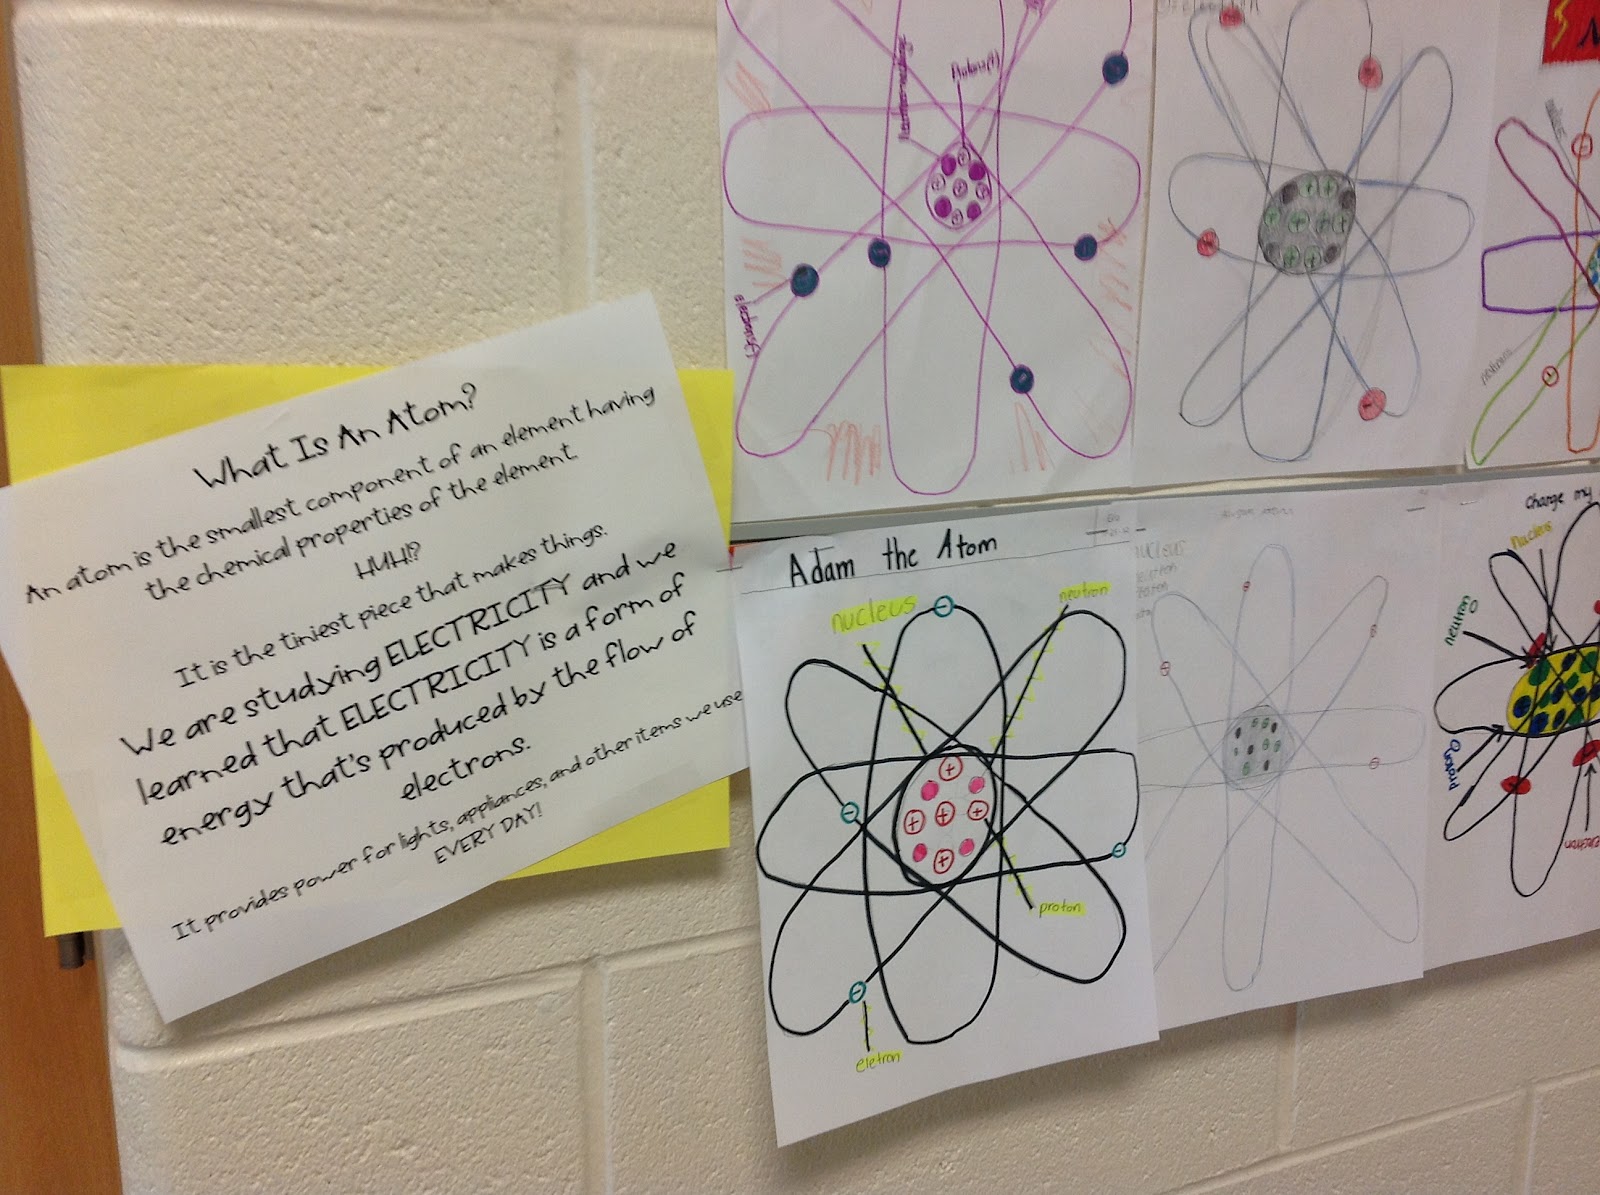 What Is An Atom?
An atom is the smallest component of an element having
the chemical properties of the element.
HUH!?
It is the tiniest piece that makes things.
We are studying ELECTRICITY and we
learned that ELECTRICITY is a form of
energy that's produced by the flow of
electrons.
It provides power for lights, appliances, and other items we use
EVERY DAY!
Adam the Atom
nucleus
neutron
proton
eletron
Charge my
nucleus
neutron
proton